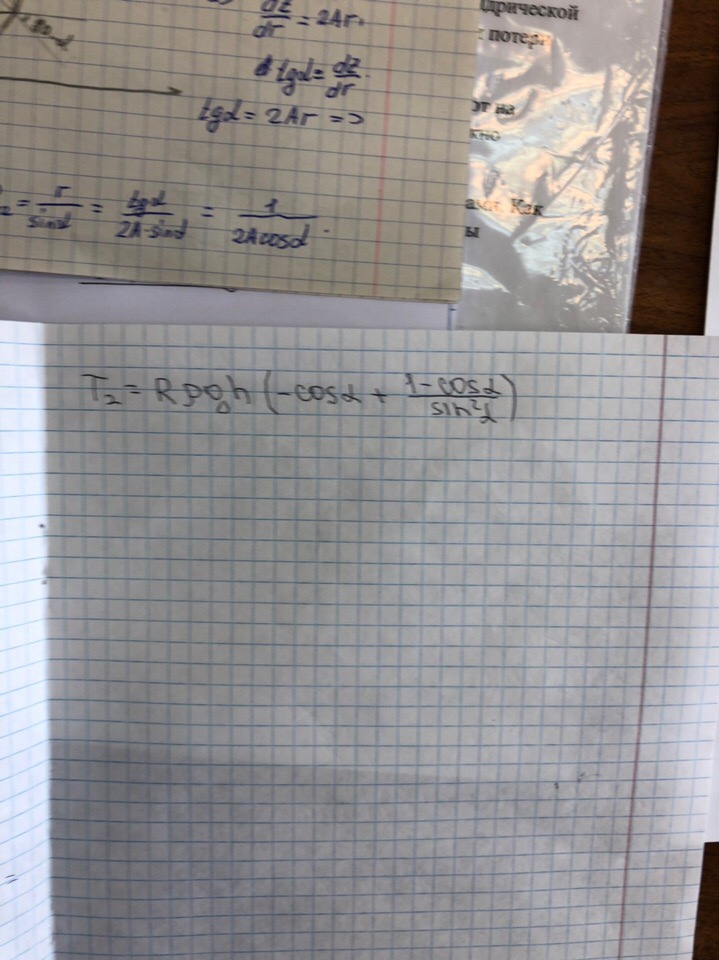 dz/dr = 2Ar.
tgα = dz/dr.
tgα = 2Ar =>
= r/sinα = tgα/2A·sinα = 1/2Acosα.
дрической
потери
на
Как
ы
T₂ = Rρgh (-cosα + 1-cosα/sin²α)